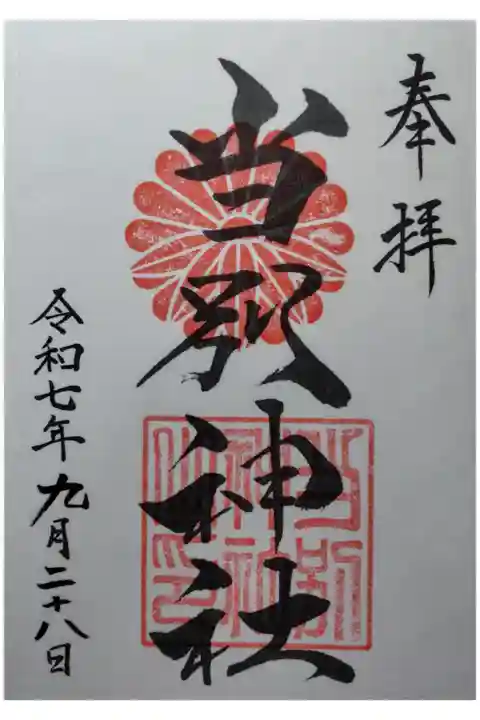 奉拝
当別神社
当別
神社
之印
令和七年九月二十八日